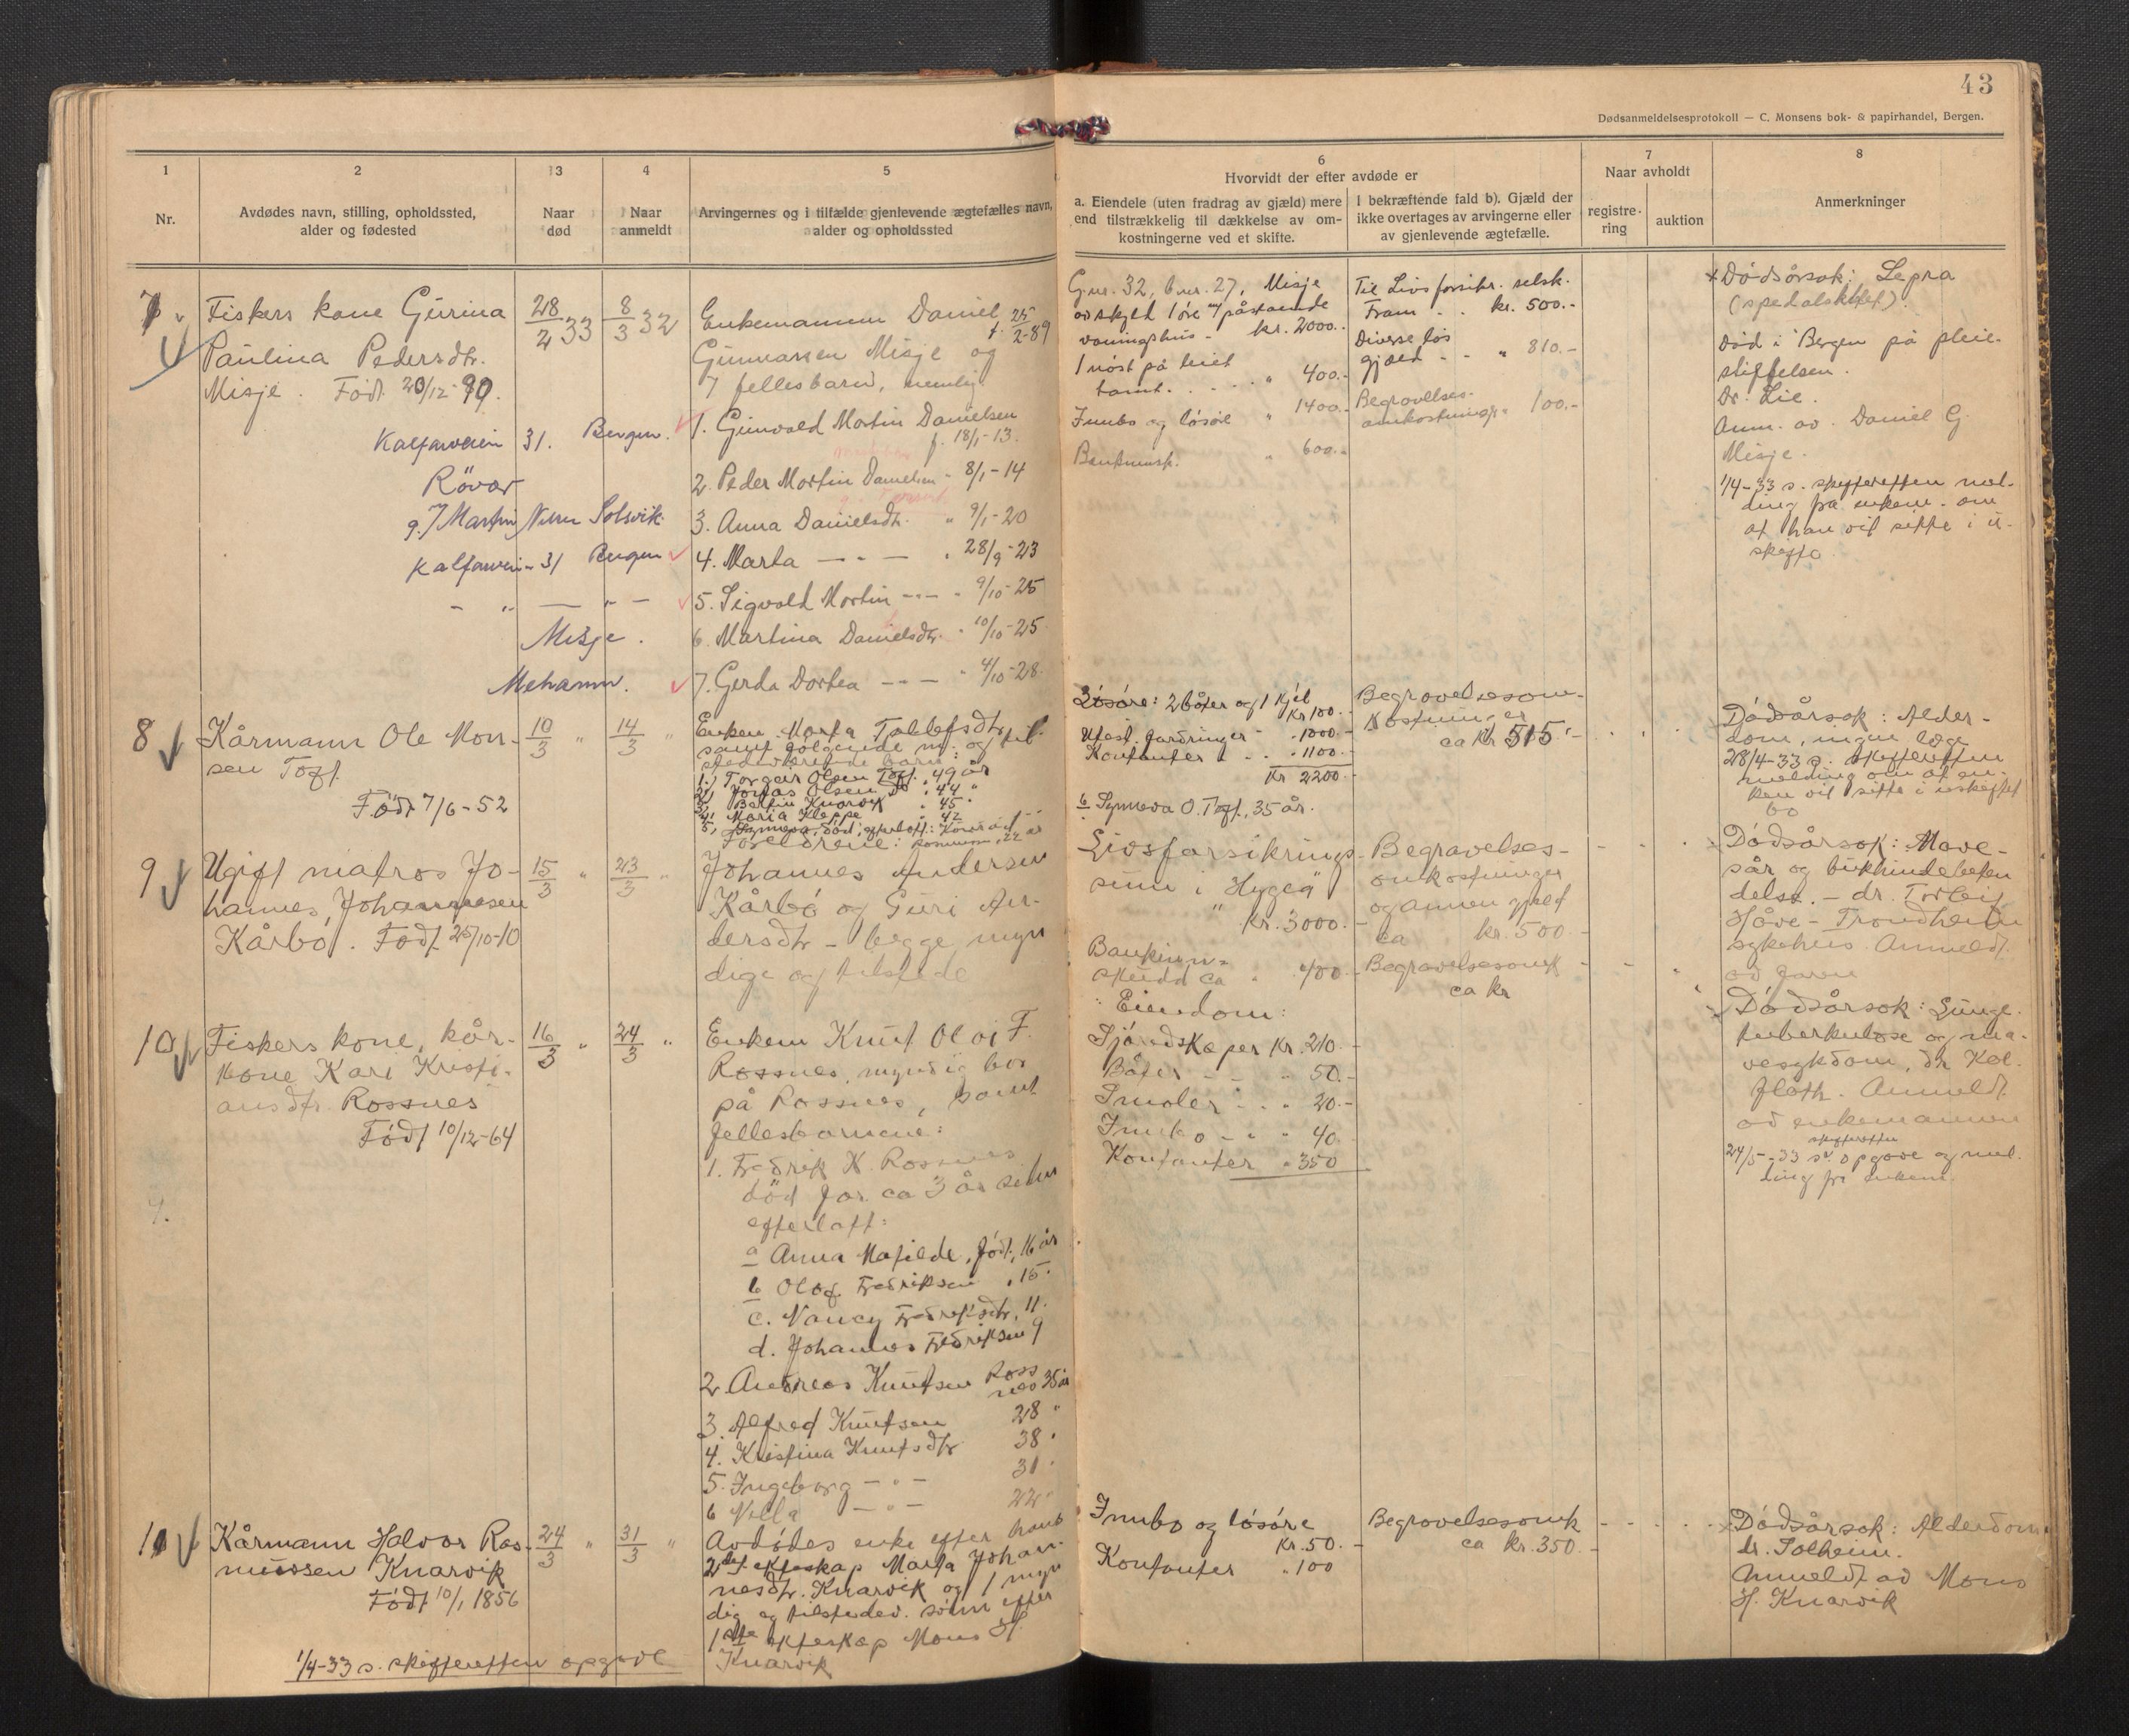 43
Dødsanmeldelsesprotokoll — C. Monsens bok- & papirhandel, Bergen.
1
Nr.
2
Avdødes navn, stilling, opholdssted,
alder og fødested
3
Naar
død
4
Naar
anmeldt
5
Arvingernes og i tilfælde gjenlevende ægtefælles navn,
alder og opholdssted
6
Hvorvidt der efter avdøde er
a. Eiendele (uten fradrag av gjæld) mere
end tilstrækkelig til dækkelse av om-
kostningerne ved et skifte.
I bekræftende fald b). Gjæld der
ikke overtages av arvingerne eller
av gjenlevende ægtefælle.
7
Naar avholdt
registre-
ring
auktion
8
Anmerkninger
7
Fiskers kone Gurina
Paulina Pedersdtr.
Misje. Født 20/12-90.
28/2 33
8/3 32
Enkemannen Daniel f. 25/2-89
Gunnarsen Misje og
7 fellesbarn, nemlig
Kalfarveien 31. Bergen.
1. Gunvald Martin Danielsen
f. 18/1-13.
Rövær
2. Peder Martin Danielsen - 8/1-14
g. m. Martin Nilsen Solsvik
3. Anna Danielsdtr. " 9/1-20
Kalfarveien 31 Bergen
4. Marta — " — " 28/9-23
- " — " -
5. Sigvald Martin - " - " 9/10-25
Misje.
6. Martina Danielsdtr. " 10/10-25
Mehamn.
7. Gerda Dortea - " - " 4/10-28
G.nr. 32, b.nr. 27, Misje
av skyld 1 øre m/ påstående
våningshus - kr. 2000.-
1 nøst på leiet
tomt. . . . . " 400.-
Innbo og løsøre " 1400.-
Bankinnsk. " 600.-
Til Livsforsikr. selsk.
Fram . . kr. 500.-
Diverse løs
gjæld - - " 810.-
Begravelses-
omkostninger " 100.-
Dødsårsak: Lepra
(spedalskhet).
Død i Bergen på pleie-
stiftelsen.
Dr. Lie.
Anm. av Daniel G.
Misje.
1/4-33 s. skifteretten mel-
ding fra enkem. om
at han vil sitte i u-
skifte.
8
Kårmann Ole Mon-
sen Toft
Født 7/6-52
10/3 "
14/3 "
Enken Marta Tollefsdtr
samt følgende m. og til-
stedeværende barn:
1.) Torger Olsen Toft, 49 år
2) Jonas Olsen do " 44 "
3, Bertin Knarvik " 45 "
4, Maria Kleppe " 42
5, Synneva, død, efterlatt: Konrad
Løsøre: 2 båter og 1 kjel
Kr 100.-
Utest. fordringer - " 1000.-
Kontanter - - " 1100.-
Kr 2200.-
6 Synneva O. Toft, 35 år.
Begravelsesom-
kostninger
ca kr 515.-
Dødsårsak: Alder-
dom, ingen læge
28/4-33 s. skifteretten
melding om at en-
ken vil sitte i uskiftet
bo
9
Ugift matros Jo-
hannes Johannesen
Kårbø. Født 25/10-10
15/3 "
23/3 "
Foreldrene:
Johannes Andersen
Kårbø og Guri An-
dersdtr - begge myn
dige og tilstede
Livsforsikrings-
sum i "Hygea"
kr. 3000.-
Bankinn-
skudd ca " 400.-
Begravelses-
omkostninger
og annen gjeld
ca kr. 500.-
Dødsårsak: Mave-
sår og bukhindebeten
delse. - dr. Torleif
Håve - Trondheim
sykehus. Anmeldt
av faren
10
Fiskers kone, kår-
kone Kari Kristi-
ansdtr. Rossnes
Født 10/12-64
16/3 "
24/3 "
Enkem Knut Olai F.
Rossnes, myndig bor
på Rossnes, samt
fellesbarnene:
1. Fredrik K. Rossnes
død for ca 3 år siden
efterlatt:
a Anna Matilde, født, 16 år
b Olaf Fredriksen " 15 "
c. Nancy Fredriksdtr, 11 "
d. Johannes Fredriksen 9
2 Andreas Knutsen Ross
nes 35 år
3. Alfred Knutsen 28 "
4. Kristina Knutsdtr 38 "
5. Ingeborg - " - 31 "
6 Nilla - " - 22 "
Eiendom:
Sjøredskaper kr. 210.-
Båter - - " 50.-
Smaler - " " 20.-
Innbo - " " 40.
Kontanter " 350
Begravelsesomk
ca kr
Dødsårsak: Lunge-
tuberkulose og ma-
vesykdom, dr Kol-
flåth. Anmeldt
av enkemannen
24/5-33 s. skifteretten opgave og mel-
ding fra enkem.
11
Kårmann Halvor Ras-
mussen Knarvik
Født 10/1 1856
24/3 "
31/3 "
Avdødes enke efter hans
2det ekteskap Marta Johan-
nesdtr. Knarvik og 1 myn
dig og tilstedev. sønn efter
1ste ekteskap Mons H.
Knarvik
1/4-33 s. skifteretten opgave
Innbo og løsøre
kr. 50.-
Kontanter " 100
Begravelsesomk
ca kr. 350.-
Dødsårsak: Alderdom
dr. Solheim.
Anmeldt av Mons
H. Knarvik